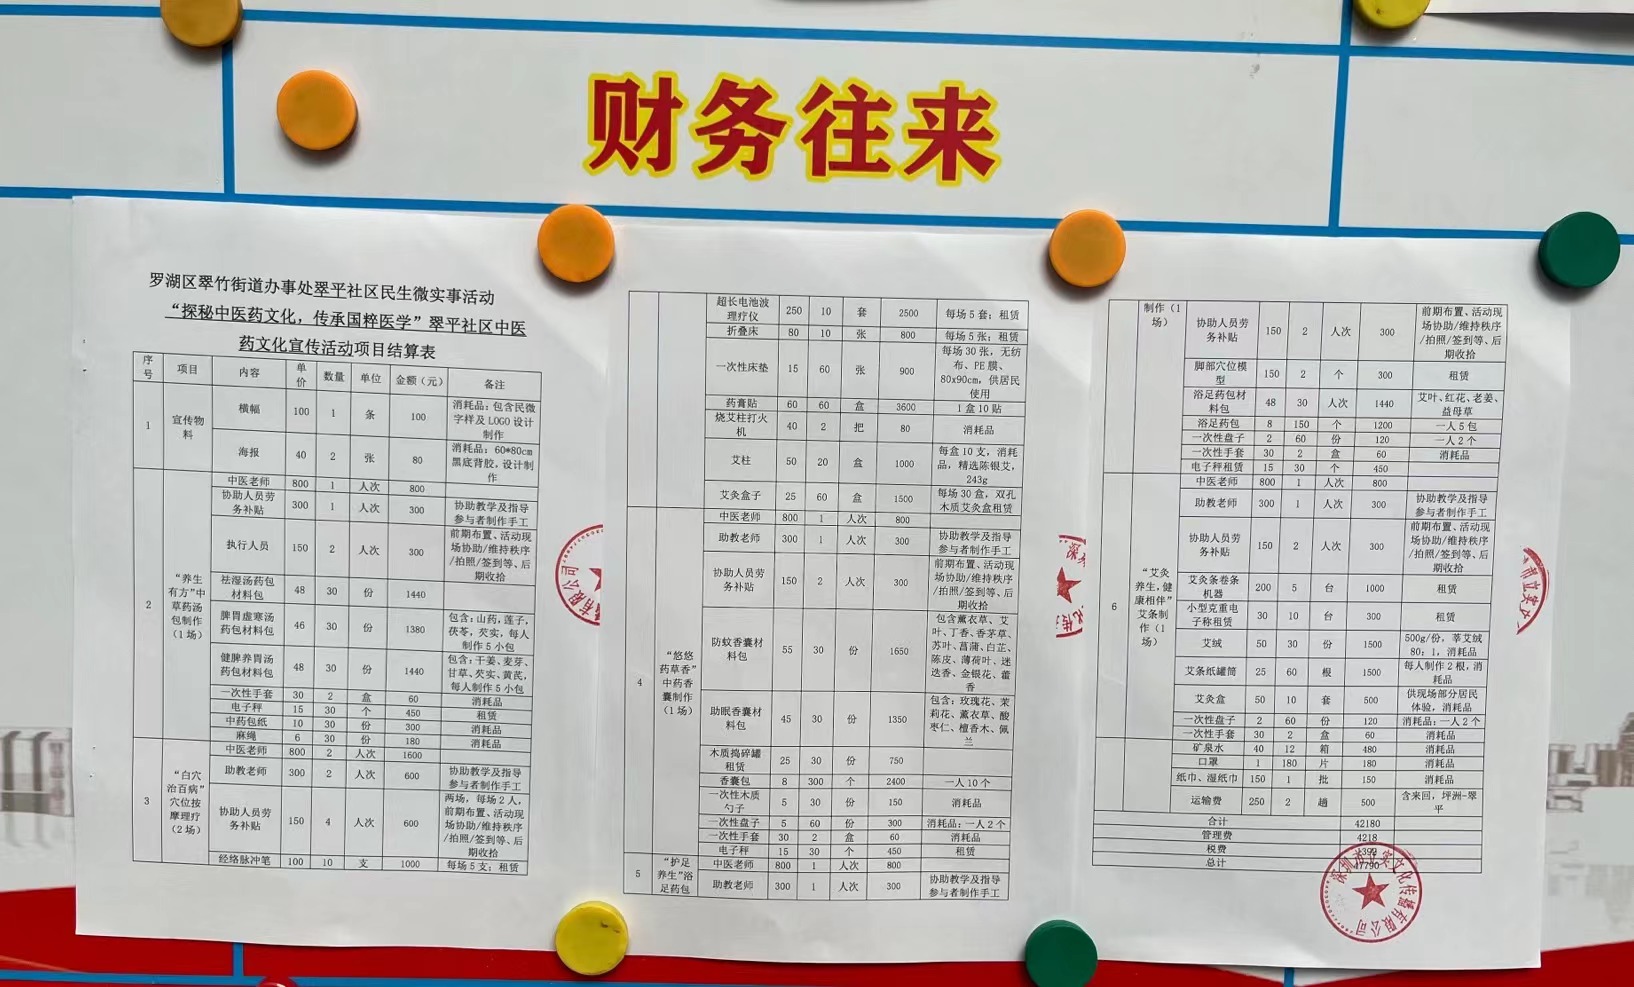 财务往来
罗湖区翠竹街道办事处翠平社区民生微实事活动
“探秘中医药文化，传承国粹医学”翠平社区中医
药文化宣传活动项目结算表
序号 项目 内容 单价 数量 单位 金额（元） 备注
1 宣传物料 横幅 100 1 条 100 消耗品：包含民微字样及LOGO设计制作
海报 40 2 张 80 消耗品：60*80cm黑底背胶，设计制作
2 “养生有方”中草药汤包制作（1场） 中医老师 800 1 人次 800
协助人员劳务补贴 300 1 人次 300 协助教学及指导参与者制作手工
执行人员 150 2 人次 300 前期布置、活动现场协助/维持秩序/拍照/签到等、后期收拾
祛湿汤药包材料包 48 30 份 1440
脾胃虚寒汤药包材料包 46 30 份 1380 包含：山药，莲子，茯苓，芡实，每人制作5小包
健脾养胃汤药包材料包 48 30 份 1440 包含：干姜、麦芽、甘草、芡实、黄芪，每人制作5小包
一次性手套 30 2 盒 60 消耗品
电子秤 15 30 个 450 租赁
中药包纸 10 30 份 300 消耗品
麻绳 6 30 份 180 消耗品
3 “白穴治百病”穴位按摩理疗（2场） 中医老师 800 2 人次 1600
助教老师 300 2 人次 600 协助教学及指导参与者制作手工
协助人员劳务补贴 150 4 人次 600 两场，每场2人，前期布置、活动现场协助/维持秩序/拍照/签到等、后期收拾
经络脉冲笔 100 10 支 1000 每场5支；租赁
超长电池波理疗仪 250 10 套 2500 每场5套；租赁
折叠床 80 10 张 800 每场5张；租赁
一次性床垫 15 60 张 900 每场30张，无纺布、PE膜、80x90cm，供居民使用
药膏贴 60 60 盒 3600 1盒10贴
烧艾柱打火机 40 2 把 80 消耗品
艾柱 50 20 盒 1000 每盒10支，消耗品，精选陈银艾，243g
艾灸盒子 25 60 盒 1500 每场30盒，双孔木质艾灸盒租赁
4 “悠悠药草香”中药香囊制作（1场） 中医老师 800 1 人次 800
助教老师 300 1 人次 300 协助教学及指导参与者制作手工
协助人员劳务补贴 150 2 人次 300 前期布置、活动现场协助/维持秩序/拍照/签到等、后期收拾
防蚊香囊材料包 55 30 份 1650 包含薰衣草、艾叶、丁香、香茅草、苏叶、菖蒲、白芷、陈皮、薄荷叶、迷迭香、金银花、藿香
助眠香囊材料包 45 30 份 1350 包含：玫瑰花、茉莉花、薰衣草、酸枣仁、檀香木、佩兰
木质捣碎罐租赁 25 30 份 750
香囊包 8 300 个 2400 一人10个
一次性木质勺子 5 30 份 150 消耗品
一次性盘子 5 60 份 300 消耗品：一人2个
一次性手套 30 2 盒 60 消耗品
电子秤 15 30 个 450 租赁
5 “护足养生”浴足药包 中医老师 800 1 人次 800
助教老师 300 1 人次 300 协助教学及指导参与者制作手工
制作（1场） 协助人员劳务补贴 150 2 人次 300 前期布置、活动现场协助/维持秩序/拍照/签到等、后期收拾
脚部穴位模型 150 2 个 300 租赁
浴足药包材料包 48 30 人次 1440 艾叶、红花、老姜、益母草
浴足药包 8 150 个 1200 一人5包
一次性盘子 2 60 份 120 一人2个
一次性手套 30 2 盒 60 消耗品
电子秤租赁 15 30 个 450
6 “艾灸养生，健康相伴”艾条制作（1场） 中医老师 800 1 人次 800
助教老师 300 1 人次 300 协助教学及指导参与者制作手工
协助人员劳务补贴 150 2 人次 300 前期布置、活动现场协助/维持秩序/拍照/签到等、后期收拾
艾灸条卷条机器 200 5 台 1000 租赁
小型克重电子称租赁 30 10 台 300 租赁
艾绒 50 30 份 1500 500g/份，莘艾绒80：1，消耗品
艾条纸罐筒 25 60 根 1500 每人制作2根，消耗品
艾灸盒 50 10 套 500 供现场部分居民体验，消耗品
一次性盘子 2 60 份 120 消耗品：一人2个
一次性手套 30 2 盒 60 消耗品
矿泉水 40 12 箱 480 消耗品
口罩 1 180 片 180 消耗品
纸巾、湿纸巾 150 1 批 150 消耗品
运输费 250 2 趟 500 含来回，坪洲-翠平
合计 42180
管理费 4218
税费
总计 47790